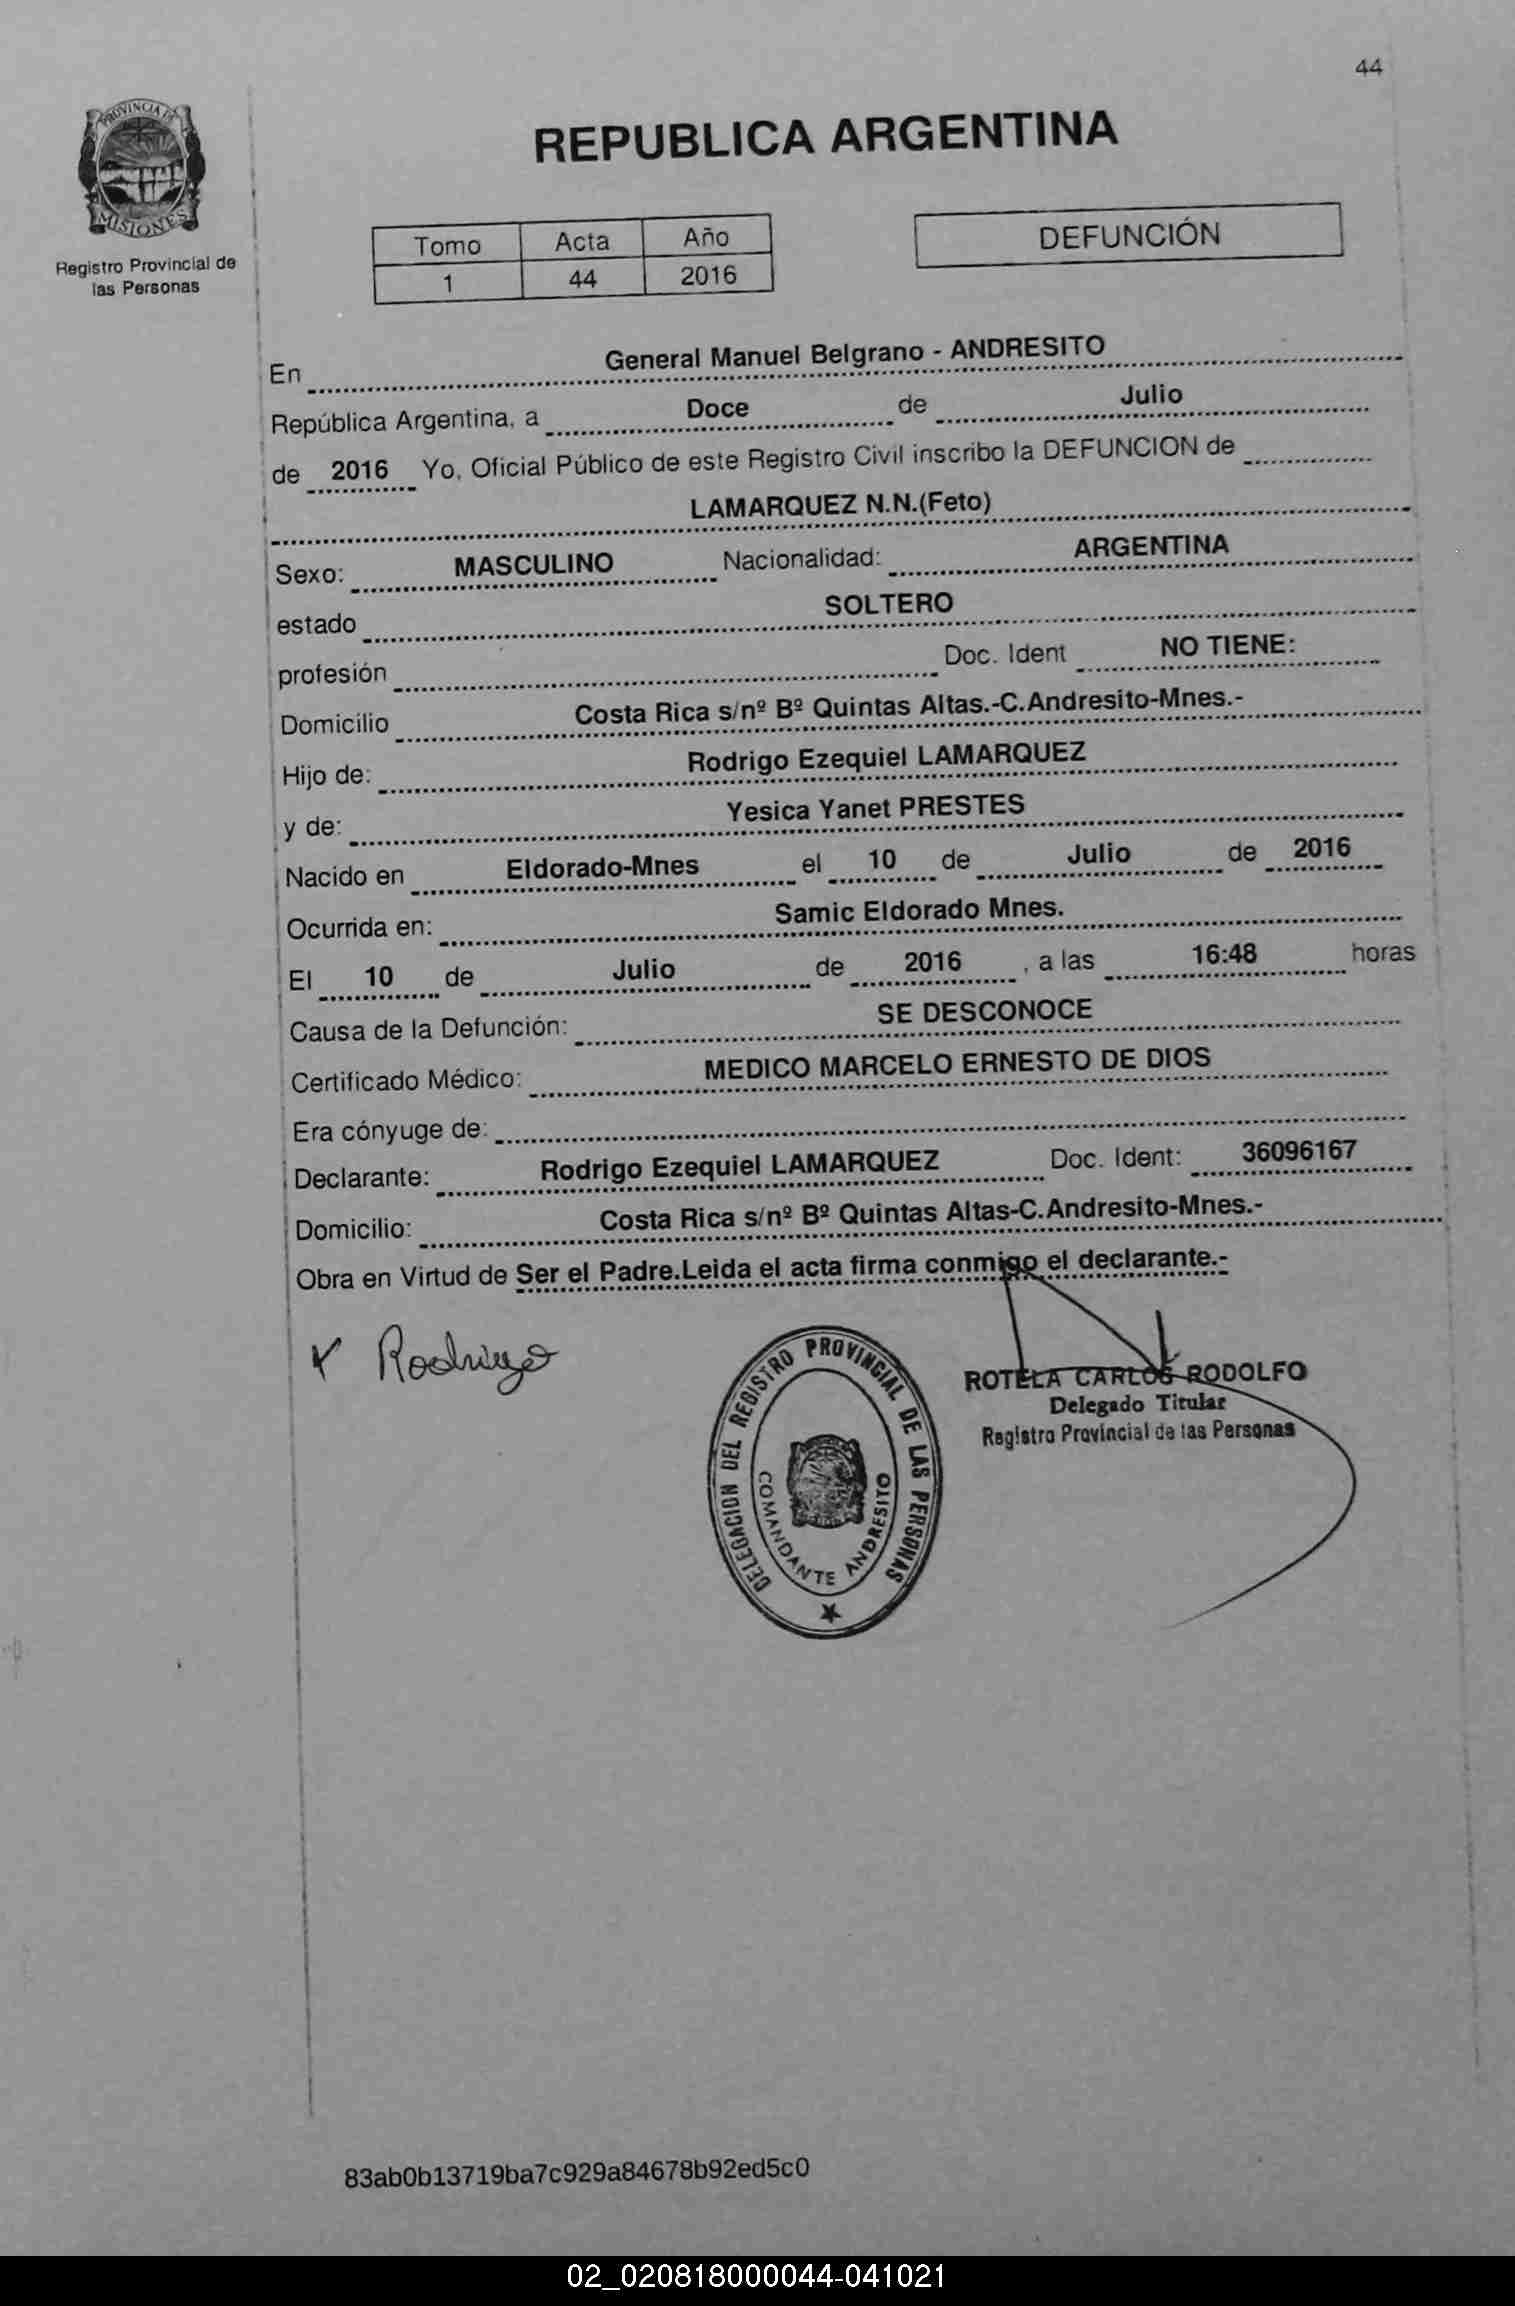 44
PROVINCIA DE
MISIONES
Registro Provincial de
las Personas
REPUBLICA ARGENTINA
Tomo Acta Año
1 44 2016
DEFUNCIÓN
En General Manuel Belgrano - ANDRESITO
República Argentina, a Doce de Julio
de 2016 Yo, Oficial Público de este Registro Civil inscribo la DEFUNCION de
LAMARQUEZ N.N.(Feto)
Sexo: MASCULINO Nacionalidad: ARGENTINA
estado SOLTERO
profesión Doc. Ident NO TIENE:
Domicilio Costa Rica s/nº Bº Quintas Altas.-C.Andresito-Mnes.-
Hijo de: Rodrigo Ezequiel LAMARQUEZ
y de: Yesica Yanet PRESTES
Nacido en Eldorado-Mnes el 10 de Julio de 2016
Ocurrida en: Samic Eldorado Mnes.
El 10 de Julio de 2016 , a las 16:48 horas
Causa de la Defunción: SE DESCONOCE
Certificado Médico: MEDICO MARCELO ERNESTO DE DIOS
Era cónyuge de:
Declarante: Rodrigo Ezequiel LAMARQUEZ Doc. Ident: 36096167
Domicilio: Costa Rica s/nº Bº Quintas Altas-C.Andresito-Mnes.-
Obra en Virtud de Ser el Padre.Leida el acta firma conmigo el declarante.-
x Rodrigo
DELEGACION DEL REGISTRO PROVINCIAL DE LAS PERSONAS
COMANDANTE ANDRESITO
ROTELA CARLOS RODOLFO
Delegado Titular
Registro Provincial de las Personas
83ab0b13719ba7c929a84678b92ed5c0
02_020818000044-041021